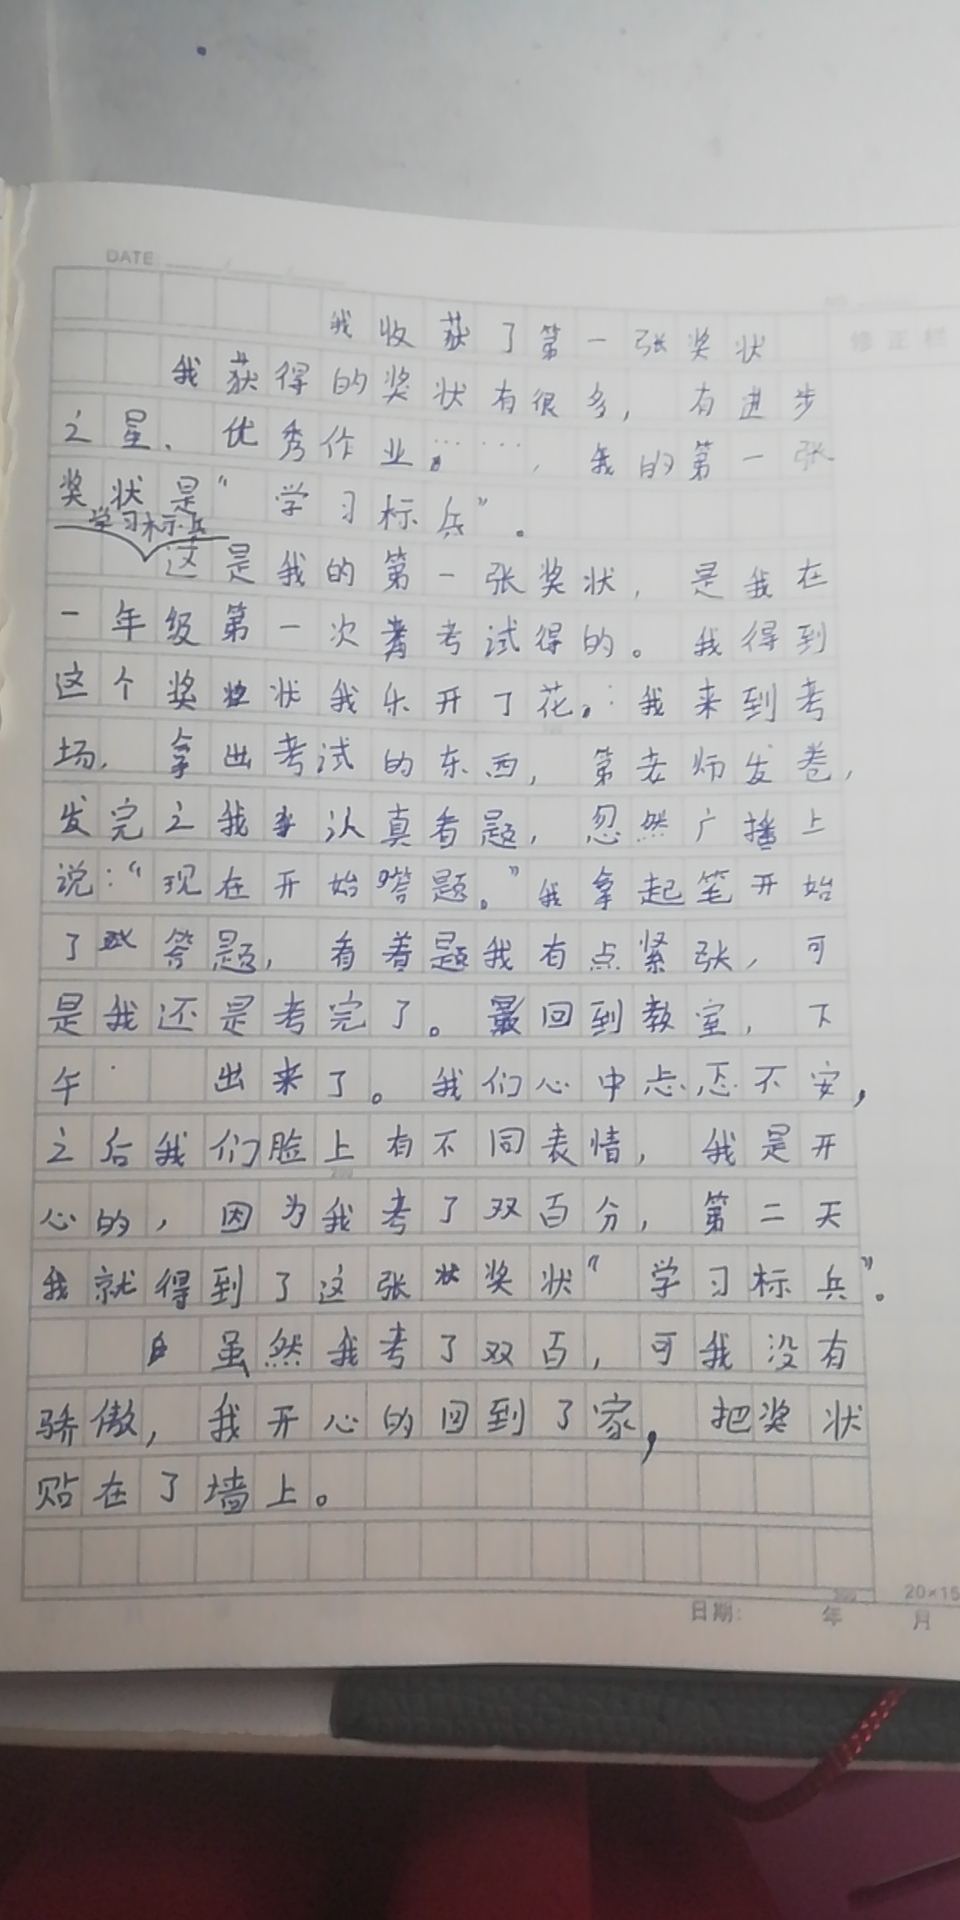 DATE:
我收获了第一张奖状
修正栏
我获得的奖状有很多，有进步
之星、优秀作业……，我的第一张
奖状是“学习标兵”。
学习标兵
这是我的第一张奖状，是我在
一年级第一次考试得的。我得到
这个奖状我乐开了花。：我来到考
场，拿出考试的东西，第老师发卷，
发完之我认真看题，忽然广播上
说：“现在开始答题。”我拿起笔开始
了答题，看着题我有点紧张，可
是我还是考完了。回到教室，下
午出来了。我们心中忐忑不安，
之后我们脸上有不同表情，我是开
心的，因为我考了双百分，第二天
我就得到了这张奖状“学习标兵”。
虽然我考了双百，可我没有
骄傲，我开心的回到了家，把奖状
贴在了墙上。
20×15
日期： 年 月